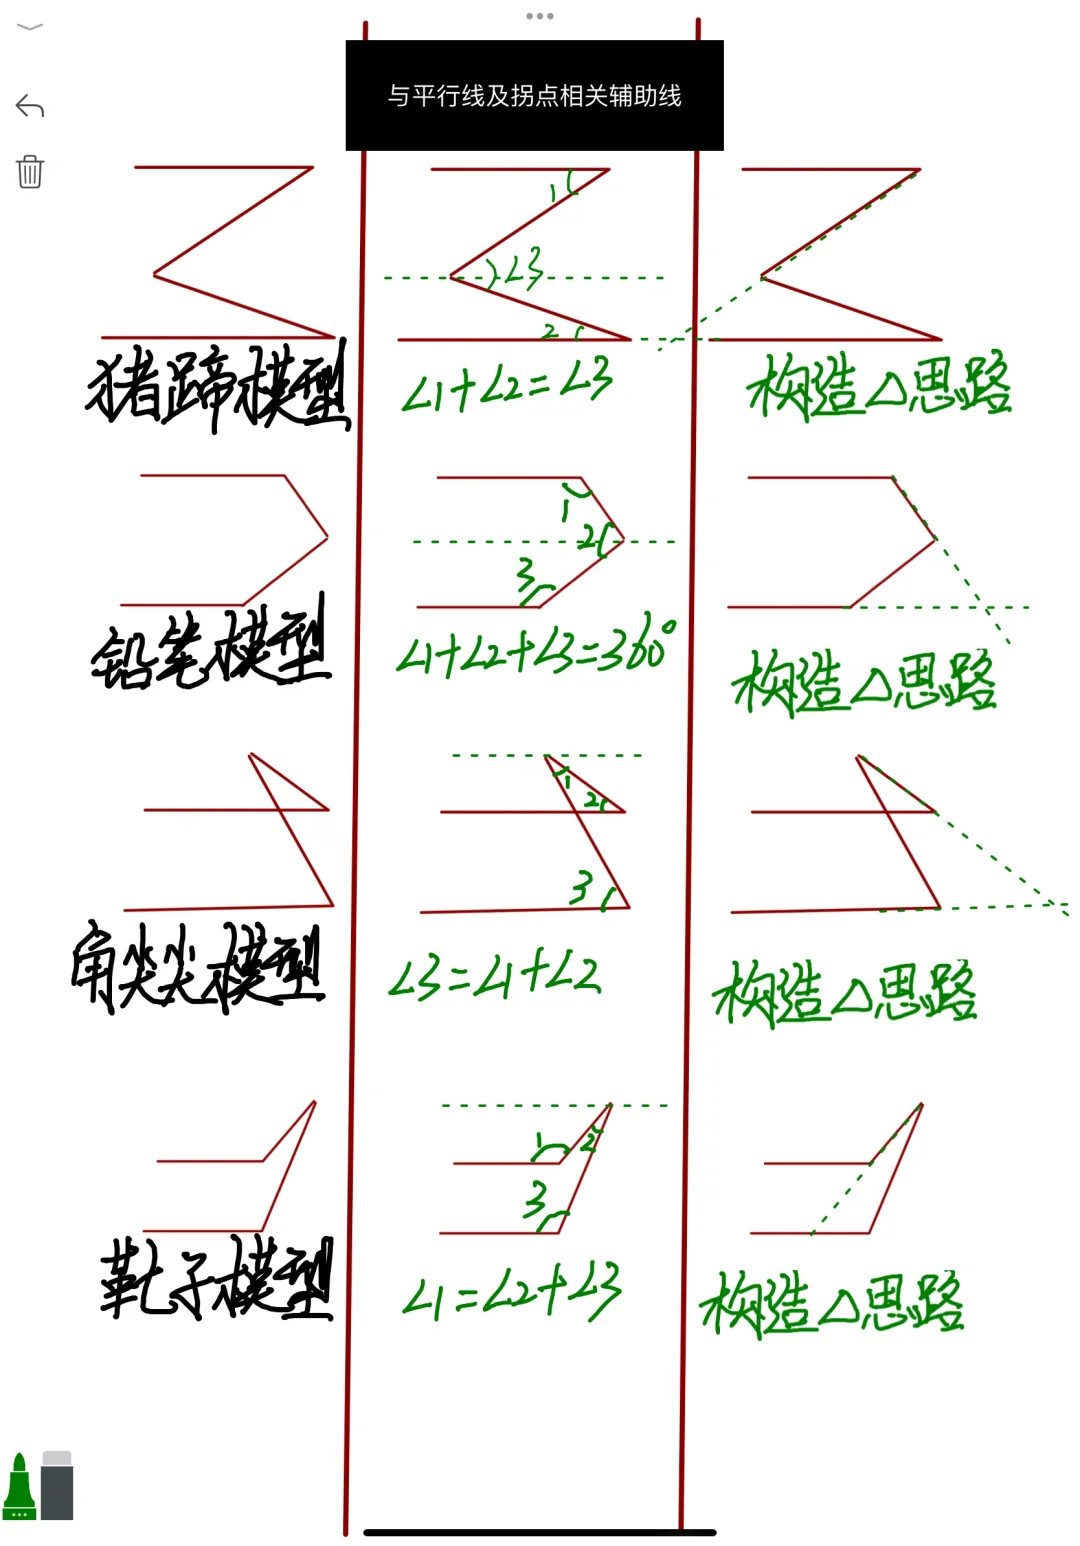 与平行线及拐点相关辅助线
1
∠3
2
猪蹄模型
∠1+∠2=∠3
构造△思路
1
2
3
铅笔模型
∠1+∠2+∠3=360°
构造△思路
1
2
3
角尖尖模型
∠3=∠1+∠2
构造△思路
1
2
3
靴子模型
∠1=∠2+∠3
构造△思路